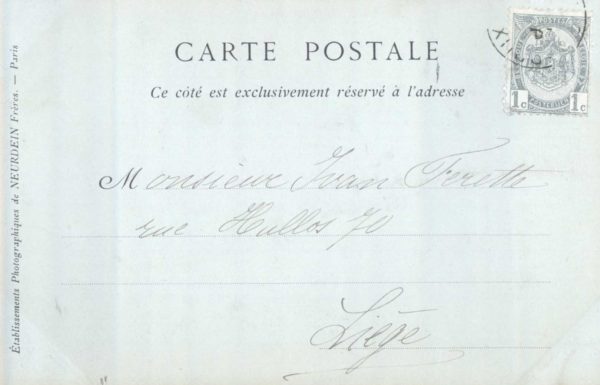 CARTE POSTALE
Ce côté est exclusivement réservé à l'adresse
Monsieur Ivan Ferette
rue Hullos 70
Liège
Établissements Photographiques de NEURDEIN Frères. — Paris
POSTES
1c 1c